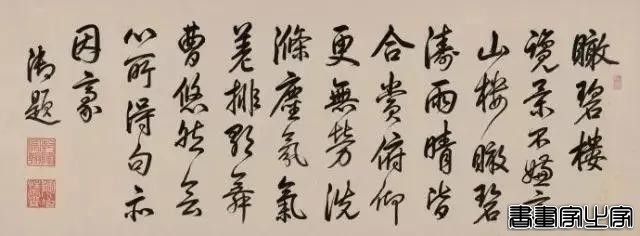 瞰碧樓
覽景不嫌高
山樓瞰碧
濤雨晴皆
合賞俯仰
更無勞洗
滌塵氛氣
差排歌舞
曹悠然會
心所得句亦
因豪
御題
書畫家必家